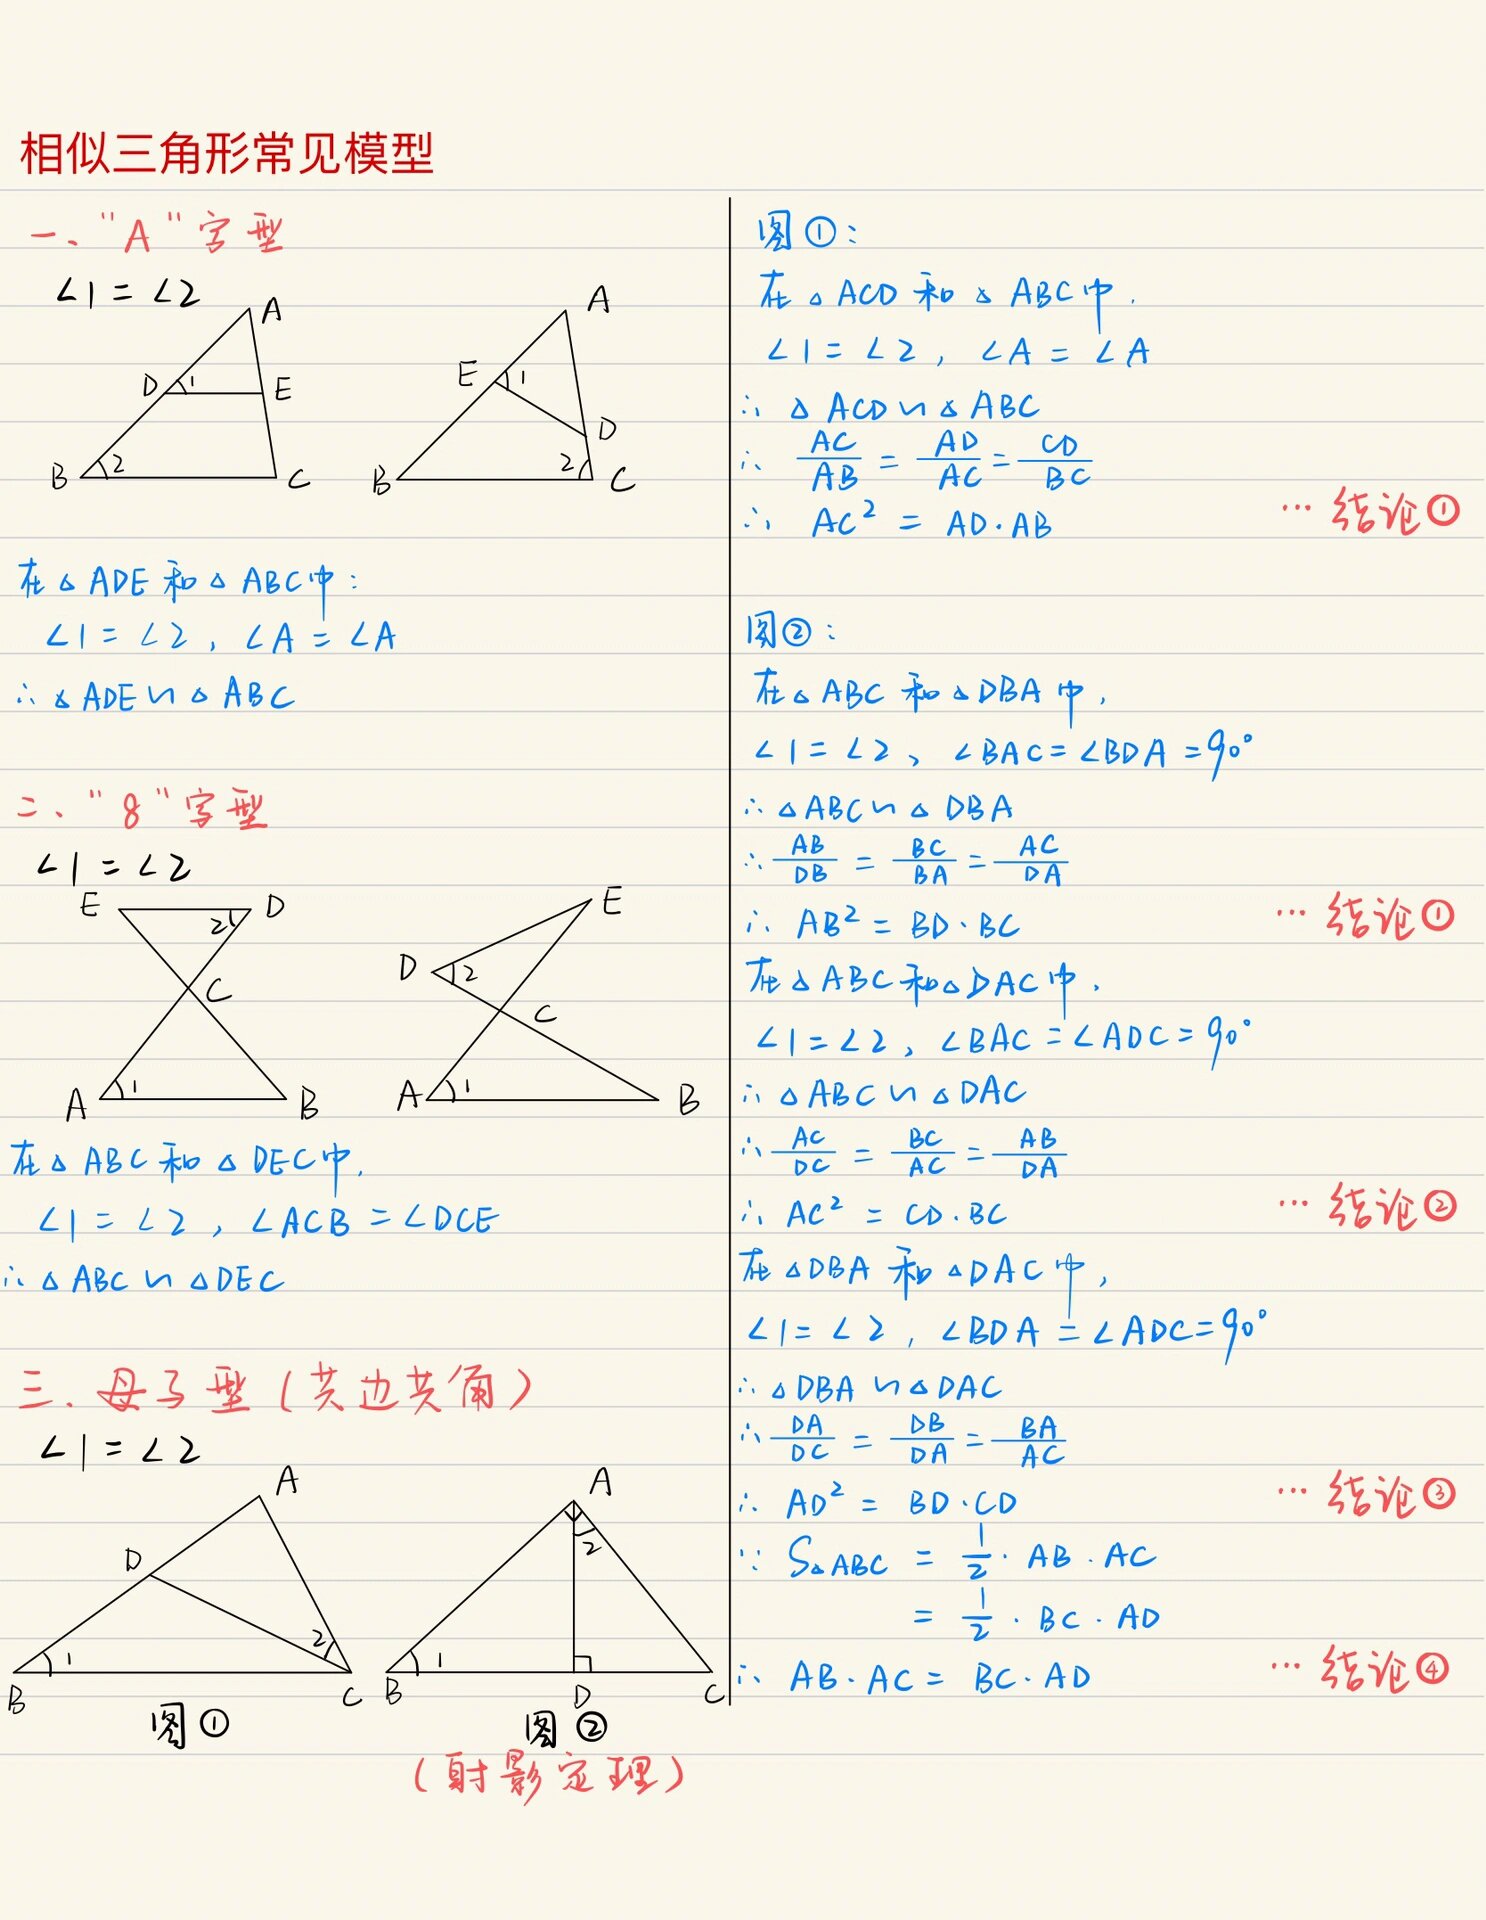 相似三角形常见模型
一、"A"字型
∠1=∠2
A
D 1 E
B 2 C
A
E 1
D
B 2 C
在△ADE和△ABC中:
∠1=∠2, ∠A=∠A
∴△ADE∽△ABC
二、"8"字型
∠1=∠2
E 2 D
C
A 1 B
E
D 2
C
A 1 B
在△ABC和△DEC中,
∠1=∠2, ∠ACB=∠DCE
∴△ABC∽△DEC
三、母子型(共边共角)
∠1=∠2
A
D
2
1
B C
图①
A
2
1
B D C
图②
(射影定理)
图①:
在△ACD和△ABC中,
∠1=∠2, ∠A=∠A
∴ △ACD∽△ABC
∴ AC/AB = AD/AC = CD/BC
∴ AC² = AD·AB …结论①
图②:
在△ABC和△DBA中,
∠1=∠2、∠BAC=∠BDA=90°
∴△ABC∽△DBA
∴ AB/DB = BC/BA = AC/DA
∴ AB² = BD·BC …结论①
在△ABC和△DAC中,
∠1=∠2, ∠BAC=∠ADC=90°
∴△ABC∽△DAC
∴ AC/DC = BC/AC = AB/DA
∴ AC² = CD·BC …结论②
在△DBA和△DAC中,
∠1=∠2, ∠BDA=∠ADC=90°
∴△DBA∽△DAC
∴ DA/DC = DB/DA = BA/AC
∴ AD² = BD·CD …结论③
∵ S△ABC = 1/2·AB·AC
= 1/2·BC·AD
∴ AB·AC = BC·AD …结论④